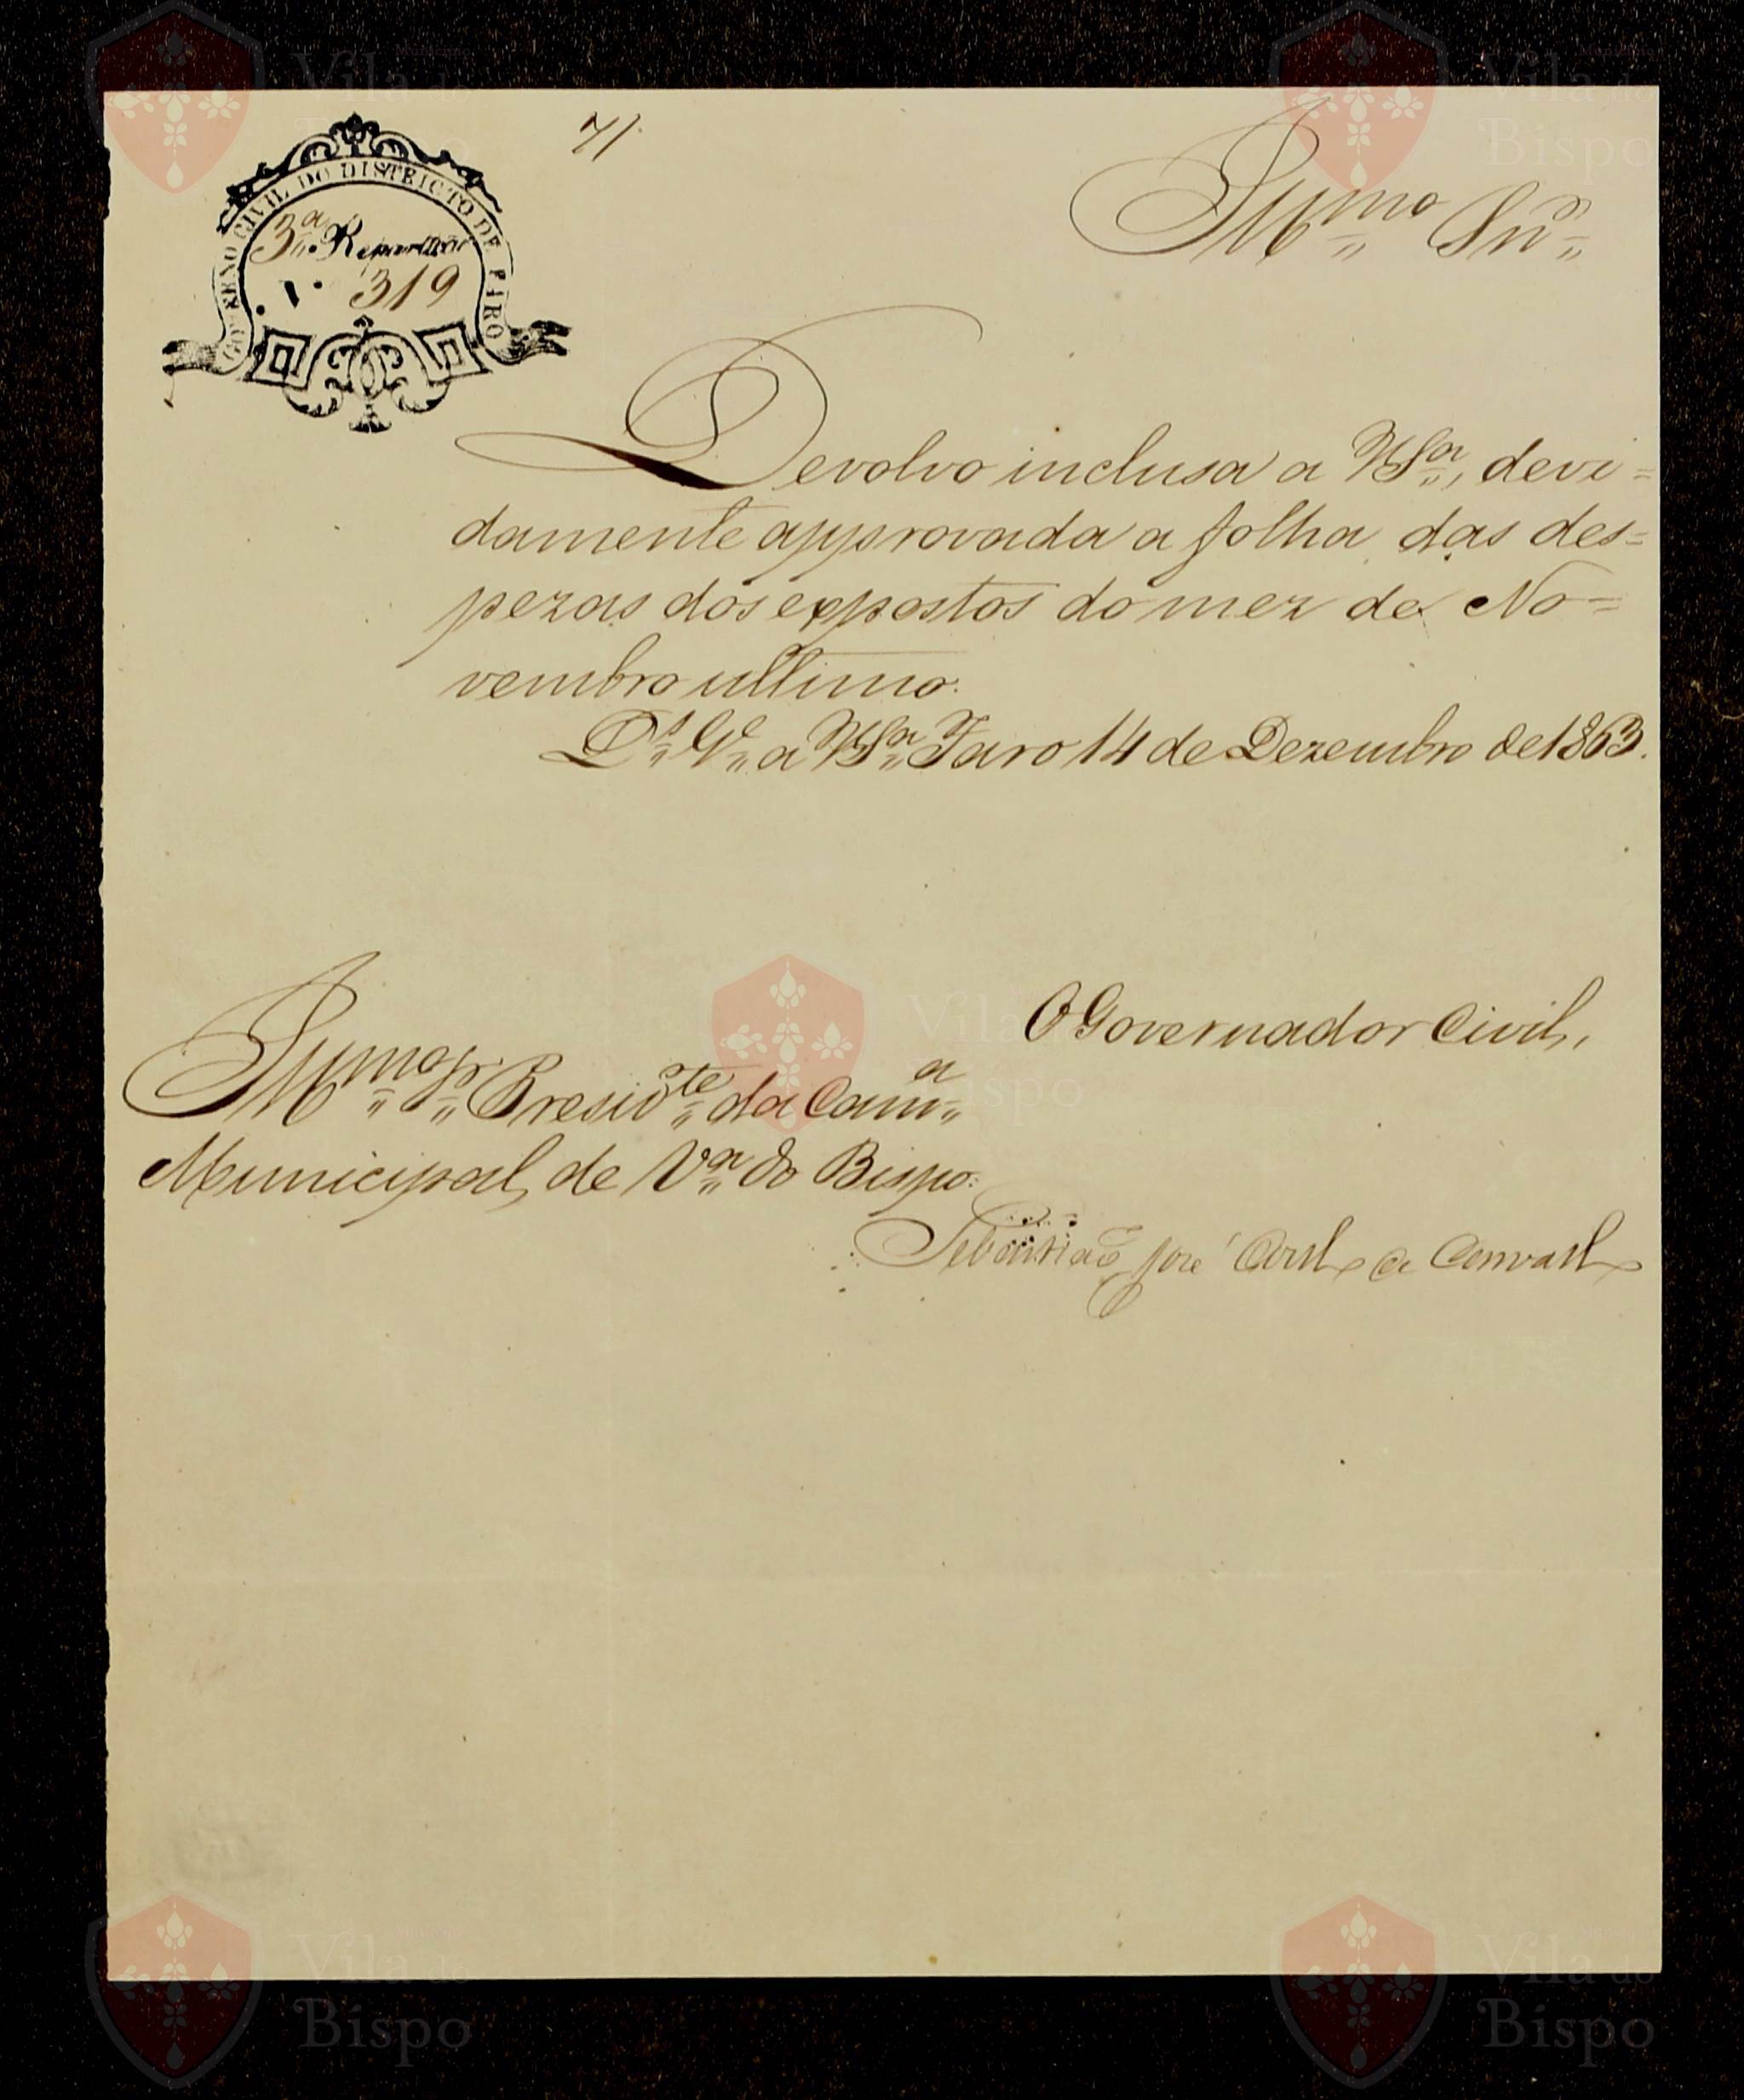 71
GOVERNO CIVIL DO DISTRICTO DE FARO
3.ª Repartição
N.º 319
Illmo Snr
Devolvo inclusa a VSª, devi=
damente approvada a folha das des=
pezas dos expostos do mez de No=
vembro ultimo.
Ds Ge a VSª Faro 14 de Dezembro de 1863.
O Governador Civil,
Illmo Sr Presidte da Camª
Municipal de Vª do Bispo.
Sebastião José
Vila do Bispo